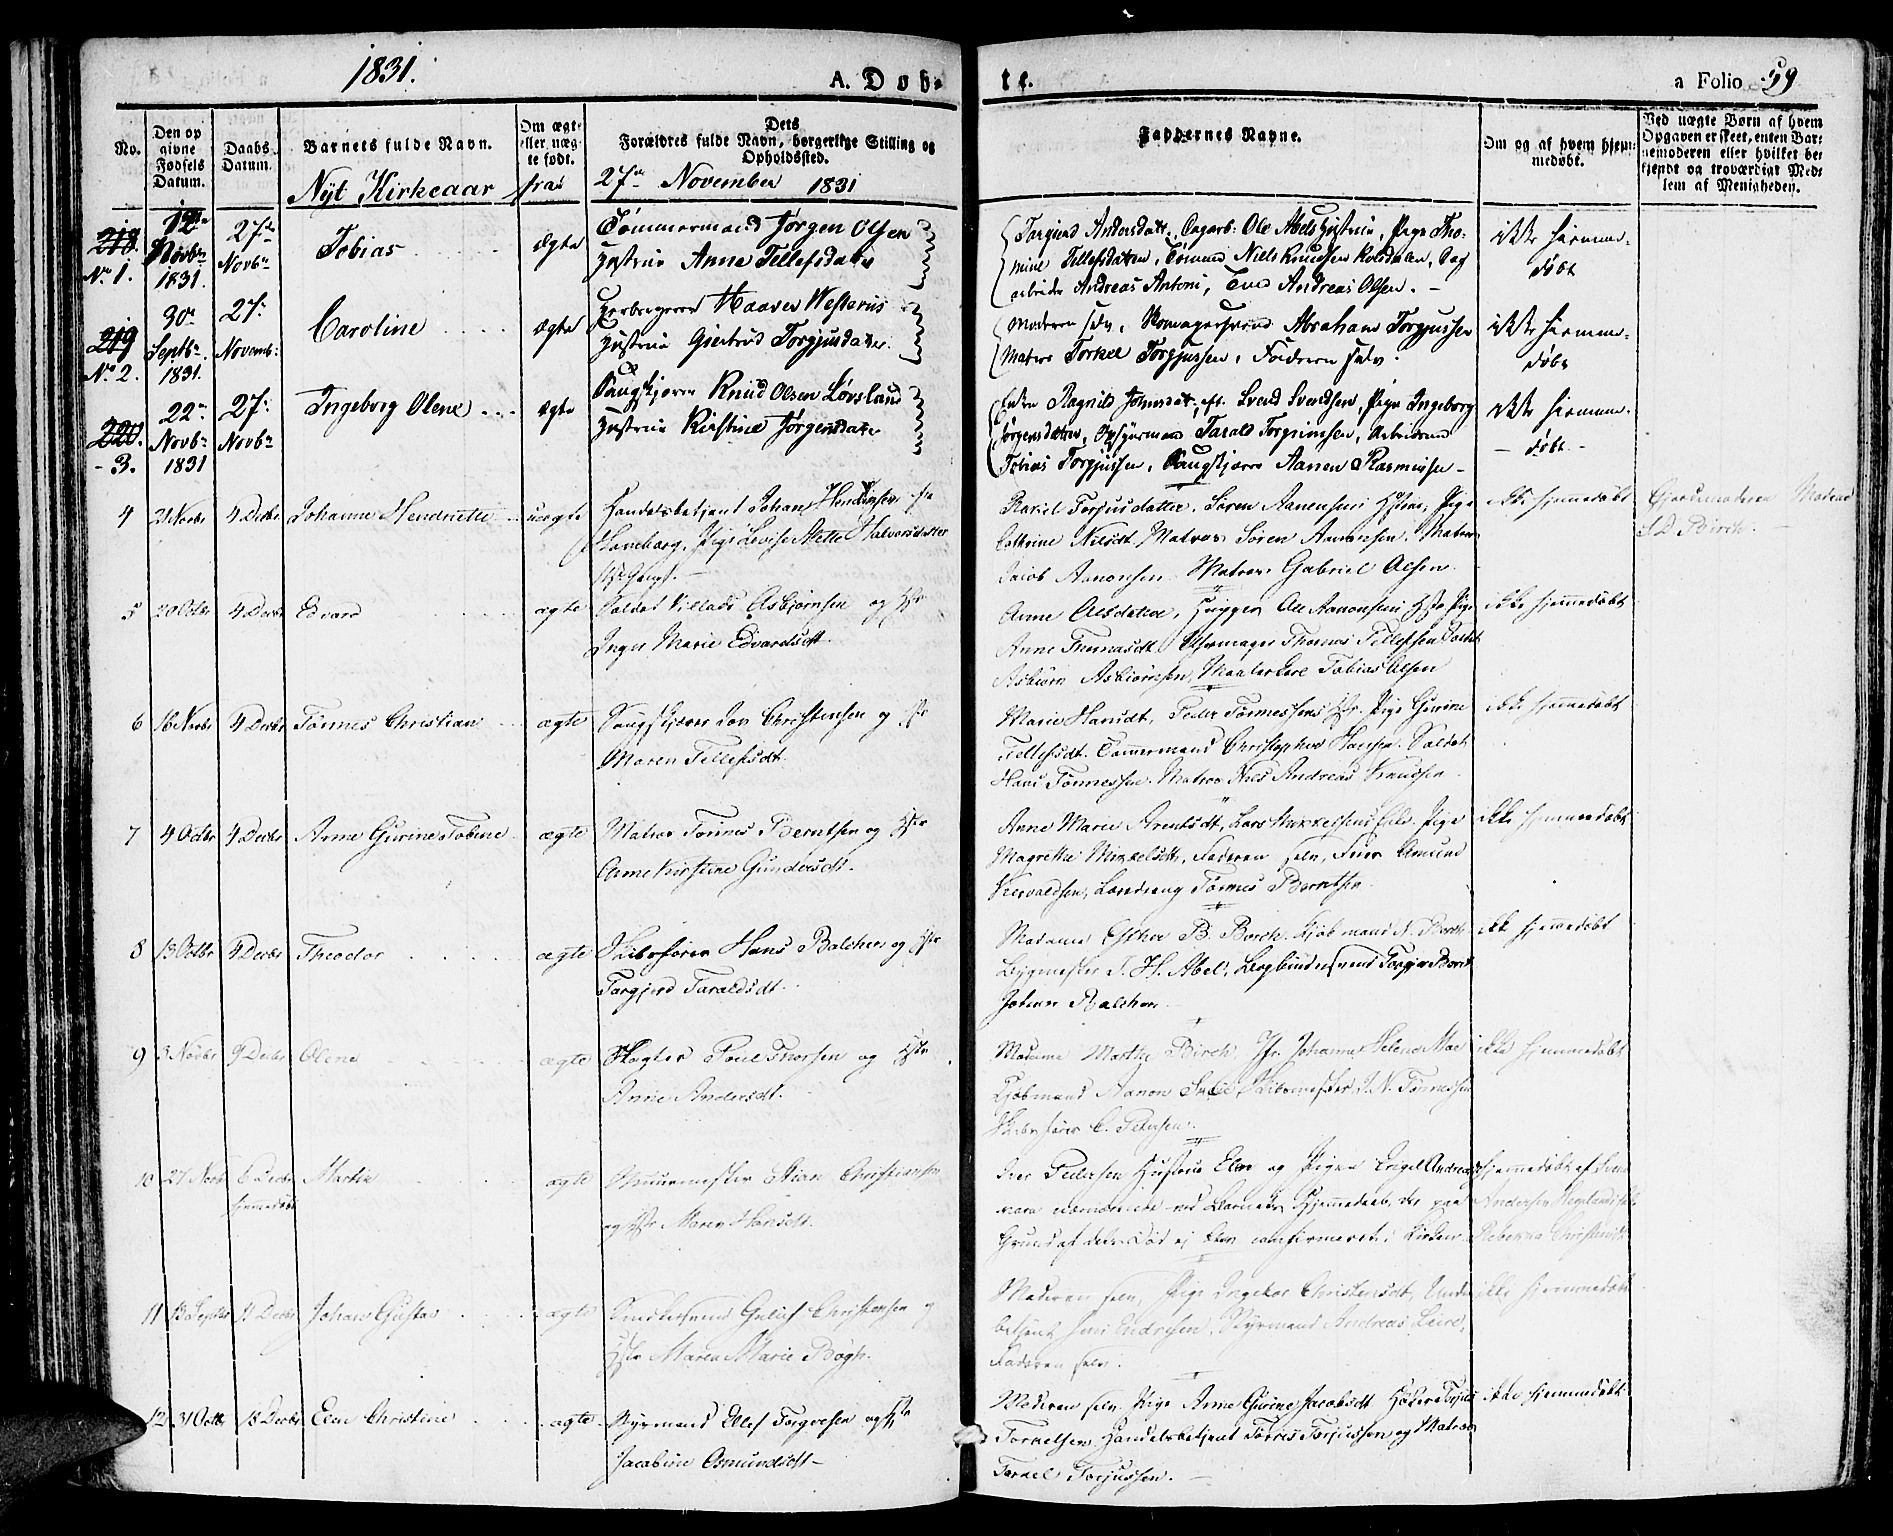 1831.
A. Døb-
te.
a Folio 59
No.
Den op
givne
Fødsels
Datum.
Daabs
Datum.
Barnets fulde Navn.
Om ægt-
eller uæg-
te født.
Dets
Forældres fulde Navn, borgerlige Stilling og
Opholdssted.
Faddernes Navne.
Om og af hvem hjem-
medøbt.
Ved uægte Børn af hvem
Opgaven er skeet, enten Bar-
nemoderen eller hvilket be-
kjendt og troværdigt Med-
lem af Menigheden.
Nyt Kirkeaar fra 27de November 1831
218.
No 1.
12te
Novbr
1831.
27de
Novbr
Tobias
ægte
Tømmermand Jørgen Olsen
Hustrue Anne Tellefsdatter
Torgierd Andersdatter, Dagarb: Ole Abels Hustrue, Pige Tho-
mine Tellefsdatter, Tømmd Niels Knudsen Koldalen, Dag
arbeider Andreas Antoni, Andreas Olsen.
ikke hiemme-
døbt
219
No 2.
30te
Septbr
1831.
27de
Novemb:
Caroline
ægte
Haaver Westerus
Hustrue Giertrud Torgjusdatter.
Moderen selv, Skomagersvend Abraham Torgjussen
Matros Torkel Torgjussen, Faderen selv.
ikke hiemme-
døbt
220.
- 3.
22de
Novbr
1831
27de
Novbr
Ingeborg Olene
ægte
Saugskjærer Knud Olsen Løvsland
Hustrue Kirstine Jørgensdatter
Enken Ragnild Johnsdatter, eft. Svend Svendsen, Pige Ingeborg
Jørgensdatter, Opsynsmand Tarald Torgrimsen, Arbeidsmd
Tobias Torgjussen, Saugskjærer Aanen Rasmussen
ikke hiemme-
døbt
4
21 Novbr
4 Decbr
Johanne Hendriette
uægte
Handelsbetjent Johan Hendriksen fra
Pige Lovise Mette Halvorsdatter
Rakel Torjusdatter, Søren Aanensens Hustrue, Pige
Cathrine Nilsdt, Matros Søren Aanonsen, Matros
Jacob Aanonsen, Matros Gabriel Olsen
ikke hjemmedøbt
Gjordemoderen Madme
Birch
5
20 Octbr
4 Decbr
Edvard
ægte
Soldat Villads Asbjørnsen og Hstr
Inger Marie Edvardsdt.
Anne Olsdatter, Ole Aanonsens Hstr, Pige
Anne Thomasdt, Thomas Tellefsen, Soldat
Asbiørn Asbiørnsen, Tobias Olsen
ikke hjemmedøbt
6
16 Novbr
4 Decbr
Tønnes Christian
ægte
Saugskjærer Lov Christensen og Hstr
Maren Tellefsdt.
Marie Hansdt, Peder Tønnessens Hstr, Pige Gurine
Tellefsdt. Tømmermand Christopher Hansen, Soldat
Hans Tønnessen, Matros Nils Andreas Knudsen
ikke hjemmedøbt
7
4 Octbr
4 Decbr
Anne Gurine Tobine
ægte
Matros Tønnes Berntsen og Hstr
Anne Kirstine Gundersdt.
Anne Marie Arentsdt, Lars Mikkelsens Pige
Magrethe Mikkelsdt, Faderen selv,
Landdreng Tønnes Berntsen
ikke hjemmedøbt
8
13 Octbr
4 Decbr
Theodor
ægte
Skibsfører Hans Balchen og Hstr
Torgjerd Taraldsdt.
Madame Esther B. Borch, Kjøbmand N. Borch
T. H. Abel,
Johan Balchen
ikke hjemmedøbt
9
3 Novbr
9 Decbr
Olene
ægte
Slagter Poul Thorsen og Hstr
Anne Andersdt.
Madame Marthe Birch, Jfr Johanne Helene Moe
Kjøbmand Aanon Skibsmester J. N. Tønnessen
Skibsfører C. Petersen.
ikke hjemmedøbt
10
27 Novb
6 Decbr
hjemmedøbt
Martin
ægte
Muurmester Stian Christiansen
og Hstr Maren Hansdt.
Iver Pedersen Hustrue Elen og Pigen Engel Andreas
vare nærværende ved Barnets Hjemmedaab, der paa
Grund af dets Død ej blev confirmeret i Kirken
hjemmedøbt af
Andersen
Christensdt.
11
13 Septbr
11 Decbr
Johan Gustav
ægte
Smedesvend Gulus Christensen og
Hstr Maren Marie Bøgh.
Moderen selv, Pige Ingebor Christensdt, Under
betjent Jens Endresen, Styrmand Andreas
Faderen selv.
ikke hjemmedøbt
12
31 Octbr
18 Decbr
Elen Christine
ægte
Styrmand Ellef Torgersen og Hstr
Jacobine Osmundsdt
Moderen selv, Pige Anne Gurine Jacobsdt,
Torkelsen, Handelsbetjent Tørris Torjussen og Matros
Torkel Torjussen.
ikke hjemmedøbt